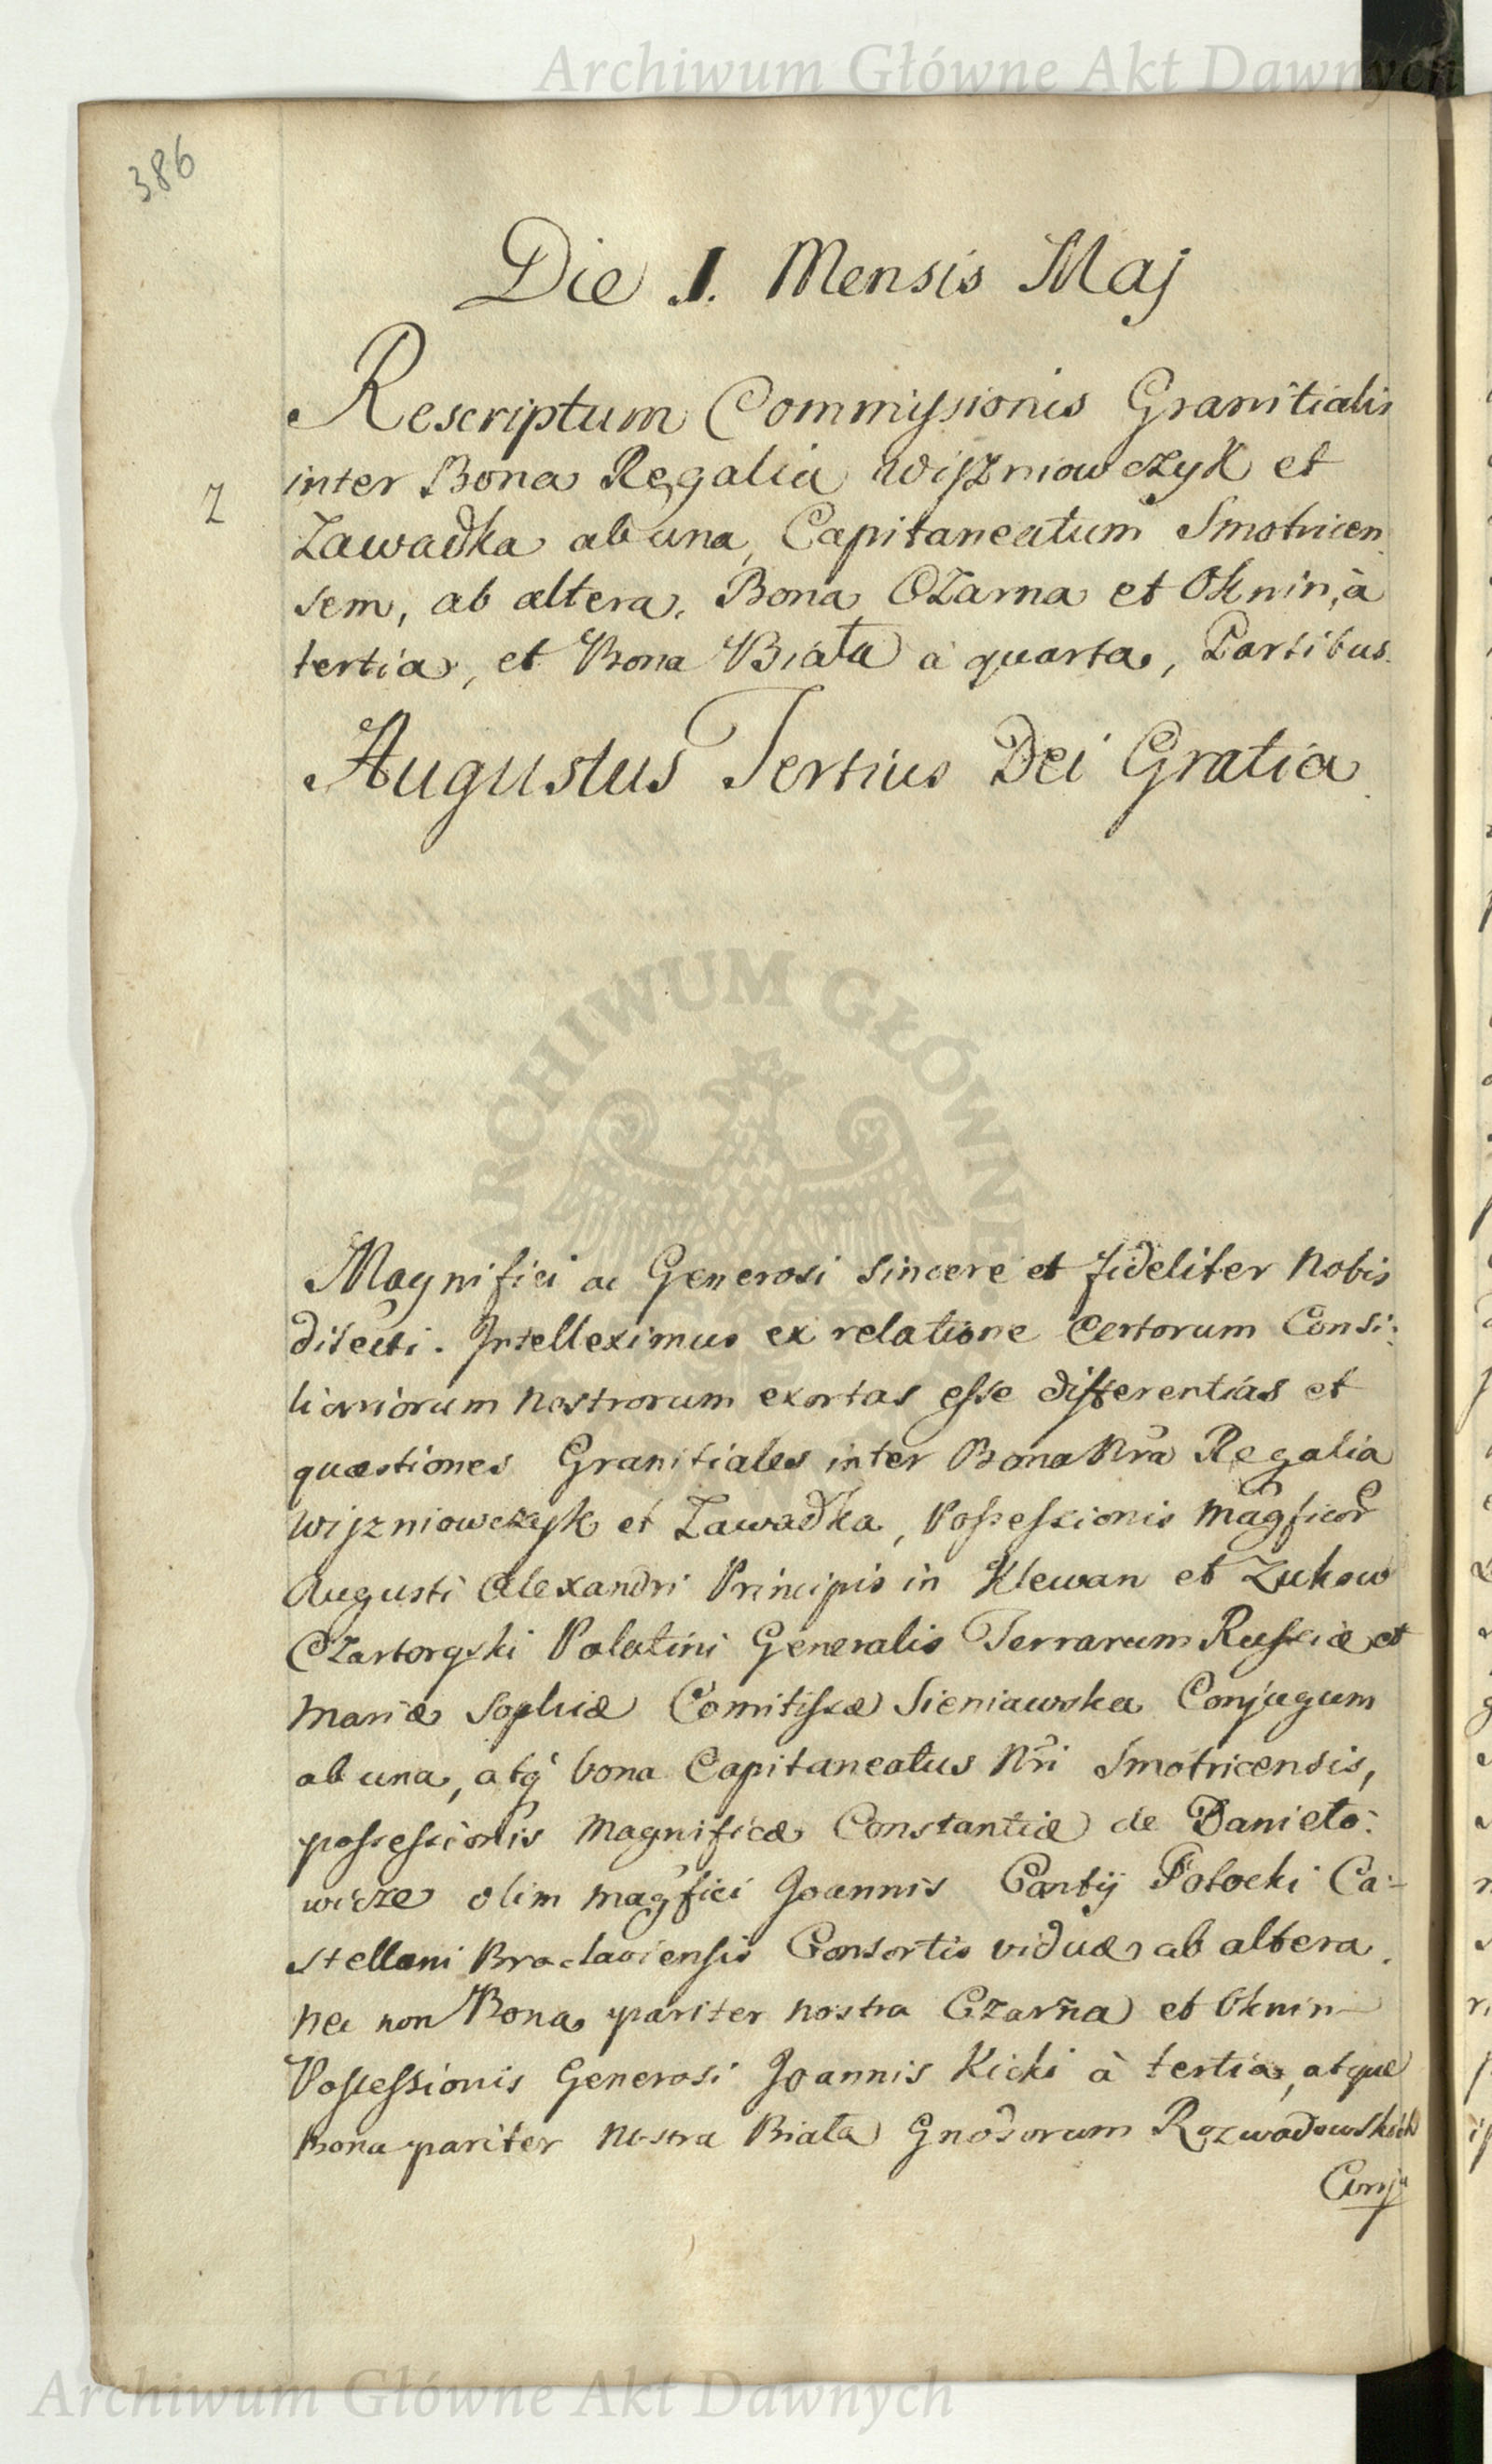 Archiwum Główne Akt Dawnych
386
Die 1. Mensis Maj
Rescriptum Commissionis Granitialis
inter Bona Regalia Wiszniowczyk et
Z
Zawadka ab una, Capitaneatum Smotricen
sem, ab altera, Bona Czarna et Oknin, à
tertia, et Bona Biała à quarta, Partibus.
Augustus Tertius Dei Gratia
ARCHIWUM GŁÓWNE
Magnifici ac Generosi sincere et fideliter Nobis
dilecti. Intelleximus ex relatione certorum Consi:
liariorum Nostrorum exortas esse differentias et
quæstiones Granitiales inter Bona Nra Regalia
Wiszniowczyk et Zawadka, Possessionis Magficor
Augusti Alexandri Principis in Klewan et Zukow
Czartoryski Palatini Generalis Terrarum Russiæ et
Mariæ Sophiæ Comitissæ Sieniawska Conjugum
ab una, atq bona Capitaneatus Nri Smotricensis,
possessionis Magnificæ Constantiæ de Danieło:
wicze olim Magfici Joannis Cantij Potocki Ca:
stellani Braclaviensis Consortis viduæ ab altera,
nec non Bona pariter nostra Czarna et Oknin
Possessionis Generosi Joannis Kicki à tertia, atque
Bona pariter Nostra Biała Gnosorum Rozwadowskich
Conju
Archiwum Główne Akt Dawnych